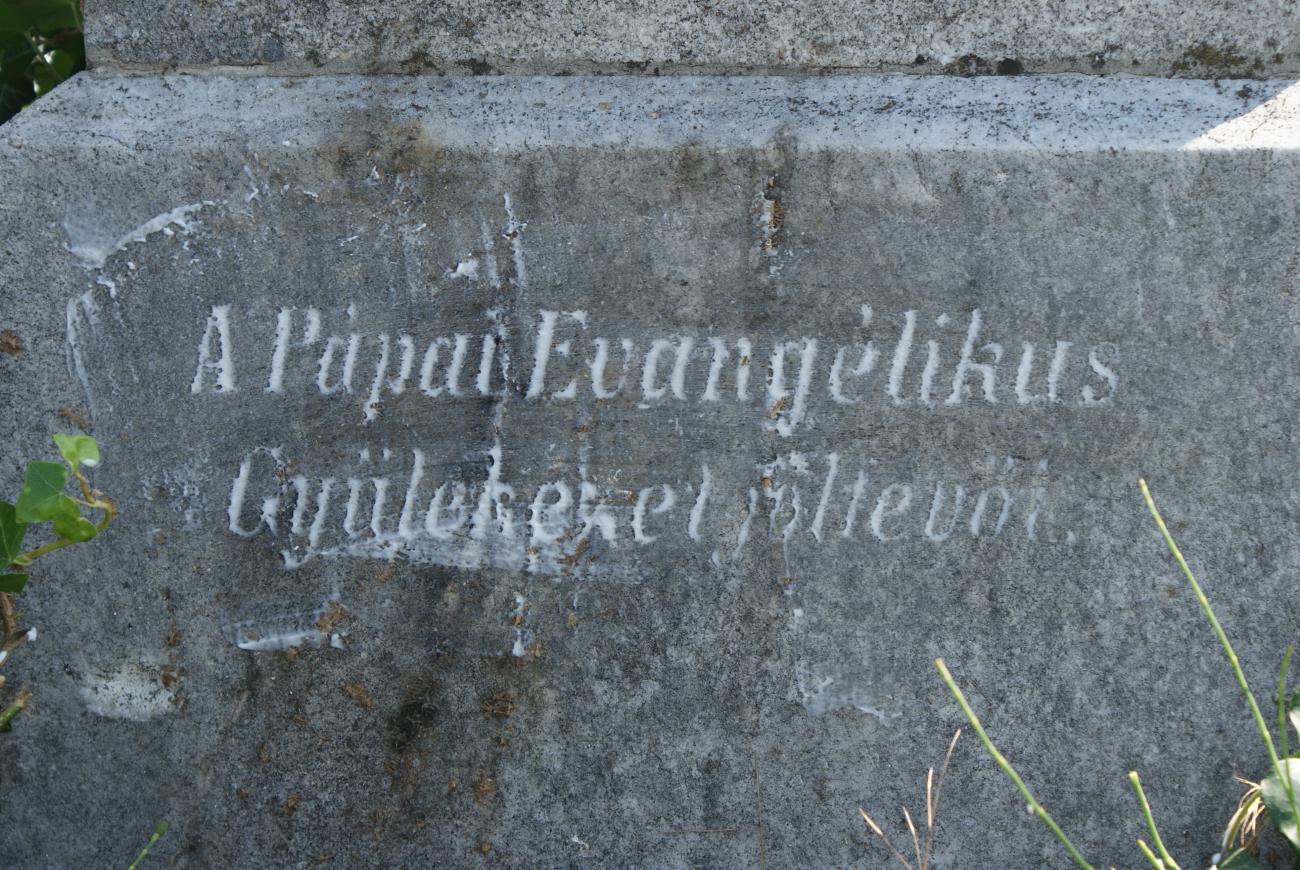 A Pápai Evangélikus
Gyülekezet jóltevői.